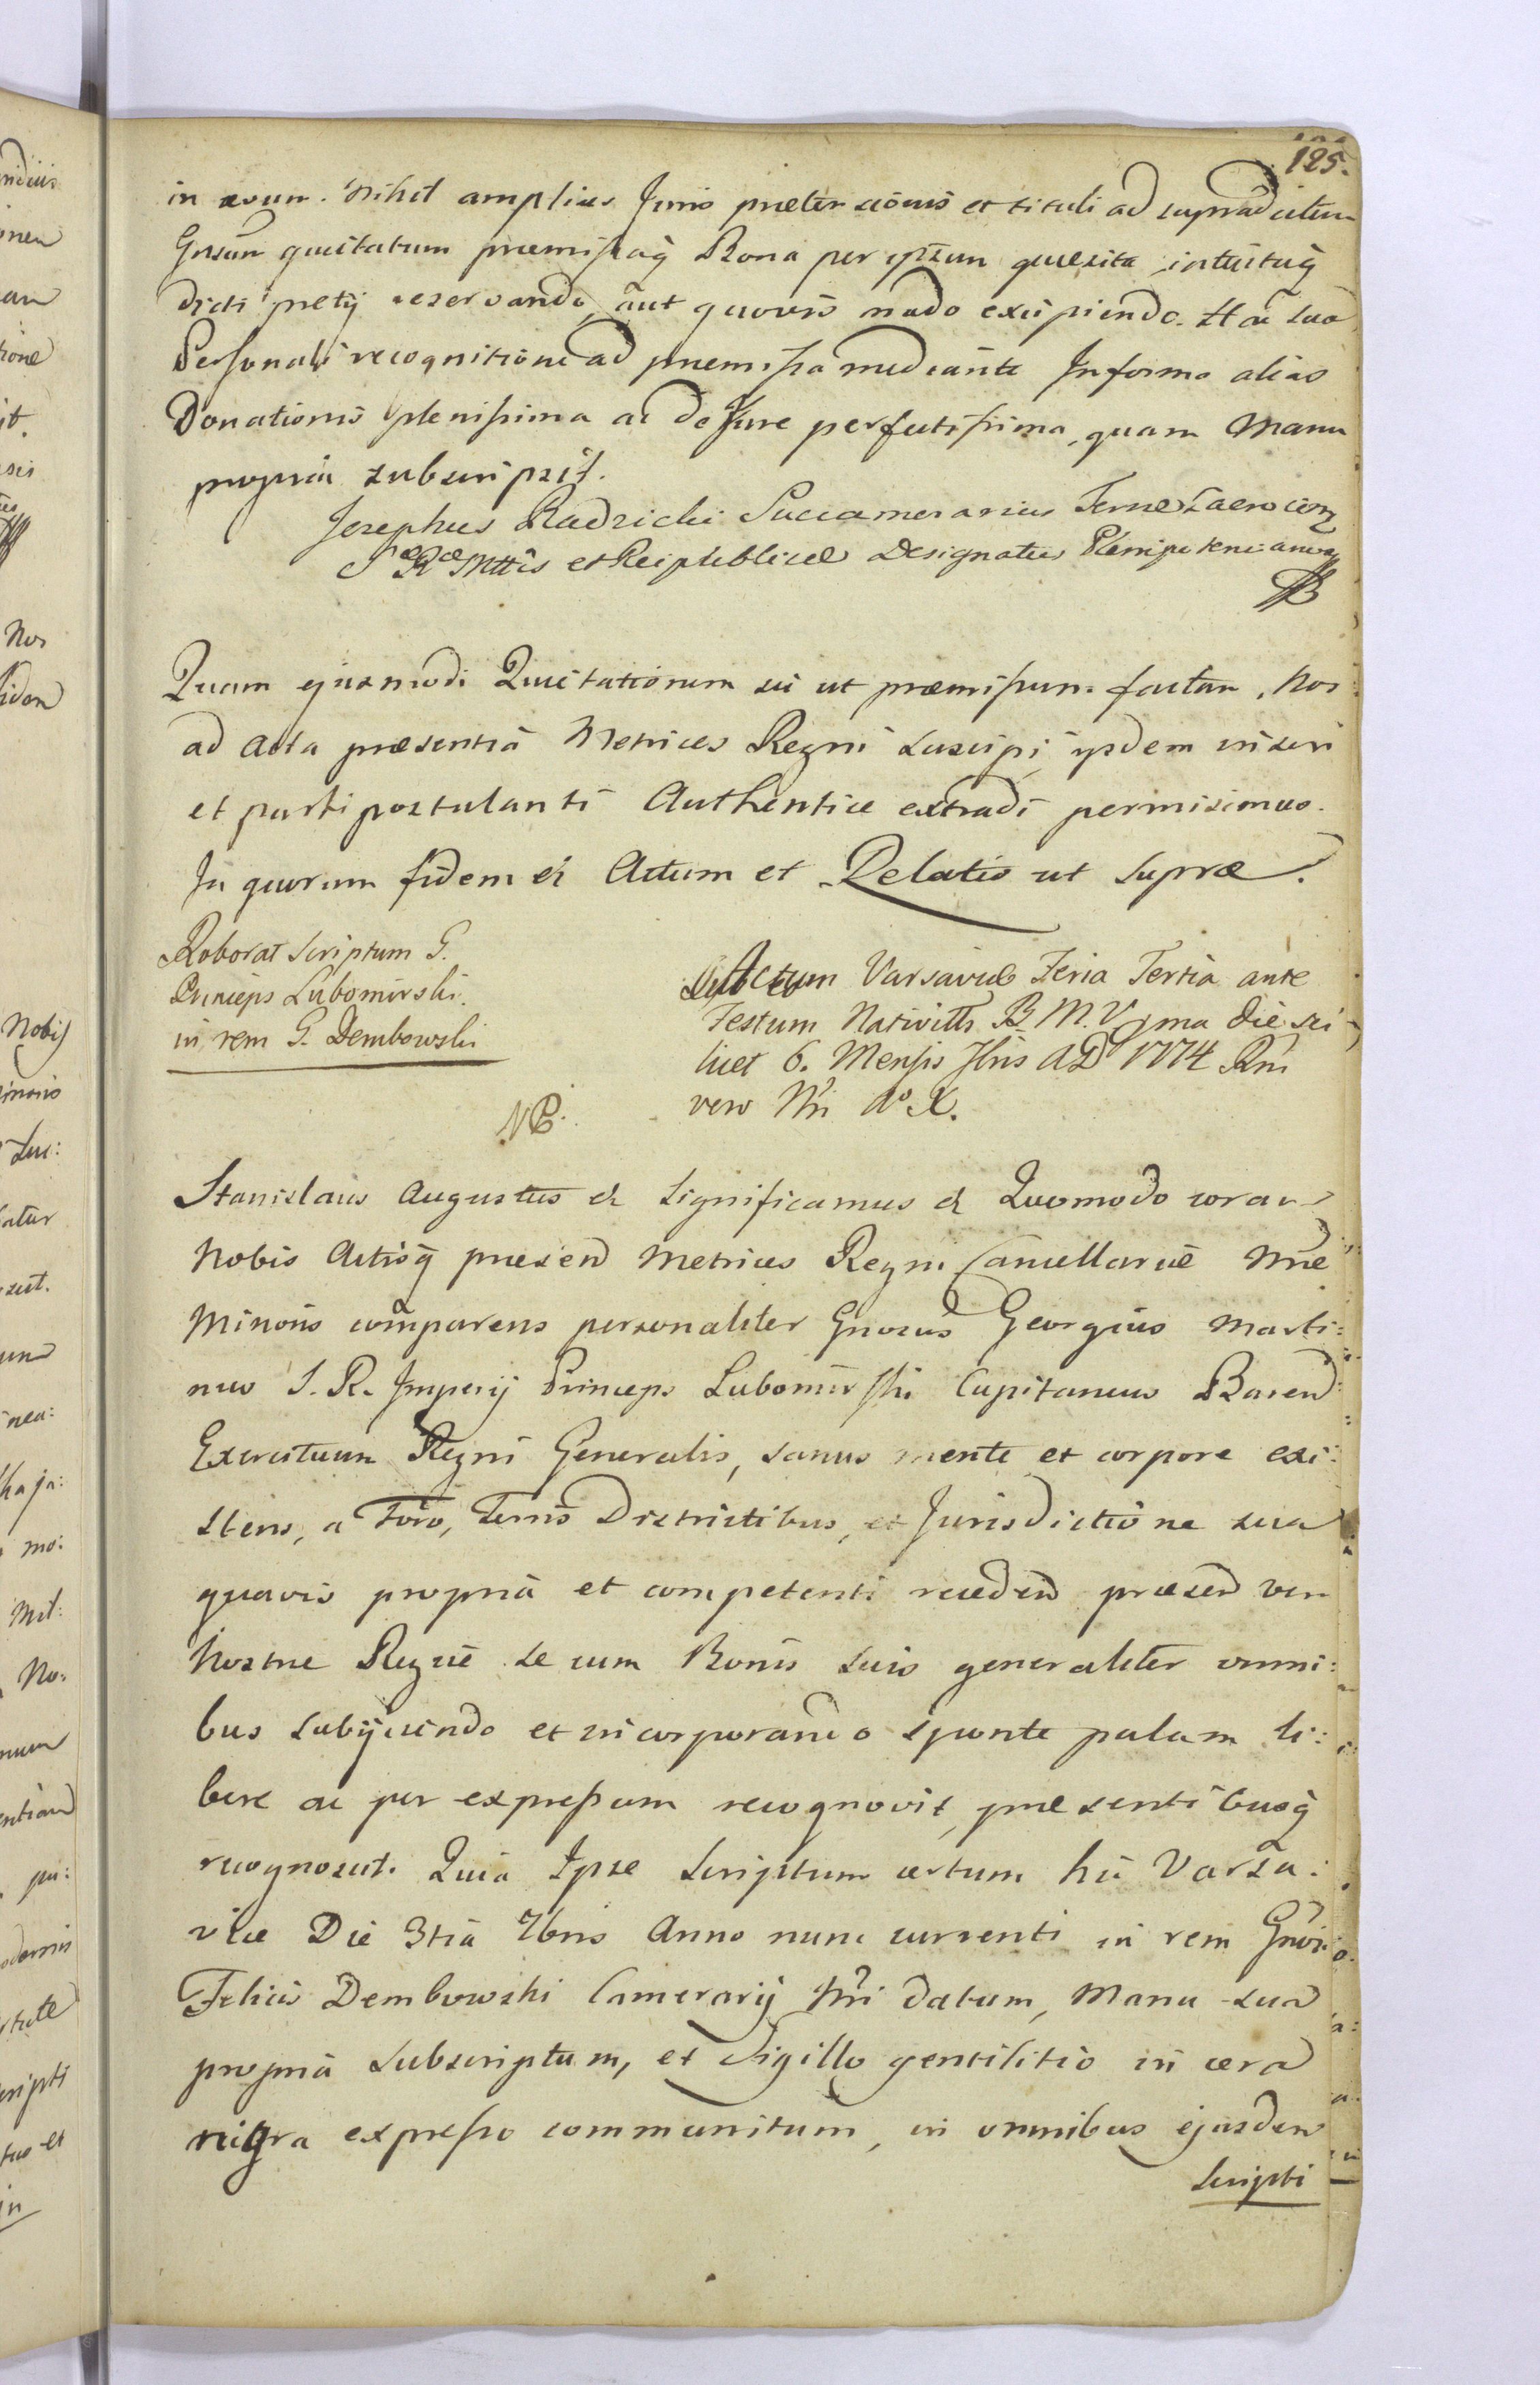 125.
in avum. Nihil amplius Juris prætensionis et tituli ad supradictum
Gnsum quietatum præmissaq Bona per ipsum quæsita intuituq
dicti pretij reservando, aut quovis modo excipiendo. Hac sua
Personali recognitione ad præmissa mediante In forma alias
Donationis plenissima ac de Jure perfectissima, quam Manu
propria subscripsit.
Josephus Radzicki Succamerarius Terræ Zacrocim
S Ræ Mttis et Reipublicæ Designatus Plenipotentiarius
Quam ejusmodi Quietationem sic ut præmissum factam, Nos
ad Acta præsentia Metrices Regni suscipi ijsdem inseri
et parti postulanti Authentice extradi permisimus.
In quorum fidem et Actum et Relatio ut supra.
Roborat Scriptum G.
Princeps Lubomirski
in rem G. Dembowski
Actum Varsaviæ Feria Tertia ante
Festum Nativitts B. M. V. ma die sci
licet 6. Mensis 7bris AD 1774 Rni
vero Nri Ao X.
NB.
Stanislaus Augustus et significamus et Quomodo coram
Nobis Actisq præsen Metrices Regni Cancellariæ Nræ
Minoris comparens personaliter Gnosus Georgius Marti:
nus S. R. Imperij Princeps Lubomirski Capitaneus Baren
Exercituum Regni Generalis, sanus mente et corpore exi:
stens, a Foro, Terris Districtibus, et Jurisdictione sua
quavis propria et competenti recedén præsén ven
Nostræ Regiæ se cum Bonis suis generaliter omni:
bus subijciendo et incorporando sponte palam li:
bere ac per expressum recognovit, præsentibusq
recognoscit. Quia Ipse Scriptum certum hic Varsa:
viæ Die 3tia 7bris Anno nunc currenti in rem Gnosi
Felicis Dembowski Camerarij Nri datum, Manu sua
propria subscriptum, et Sigillo gentilitio in cera
nigra expresso communitum, in omnibus ejusdem
Scripti